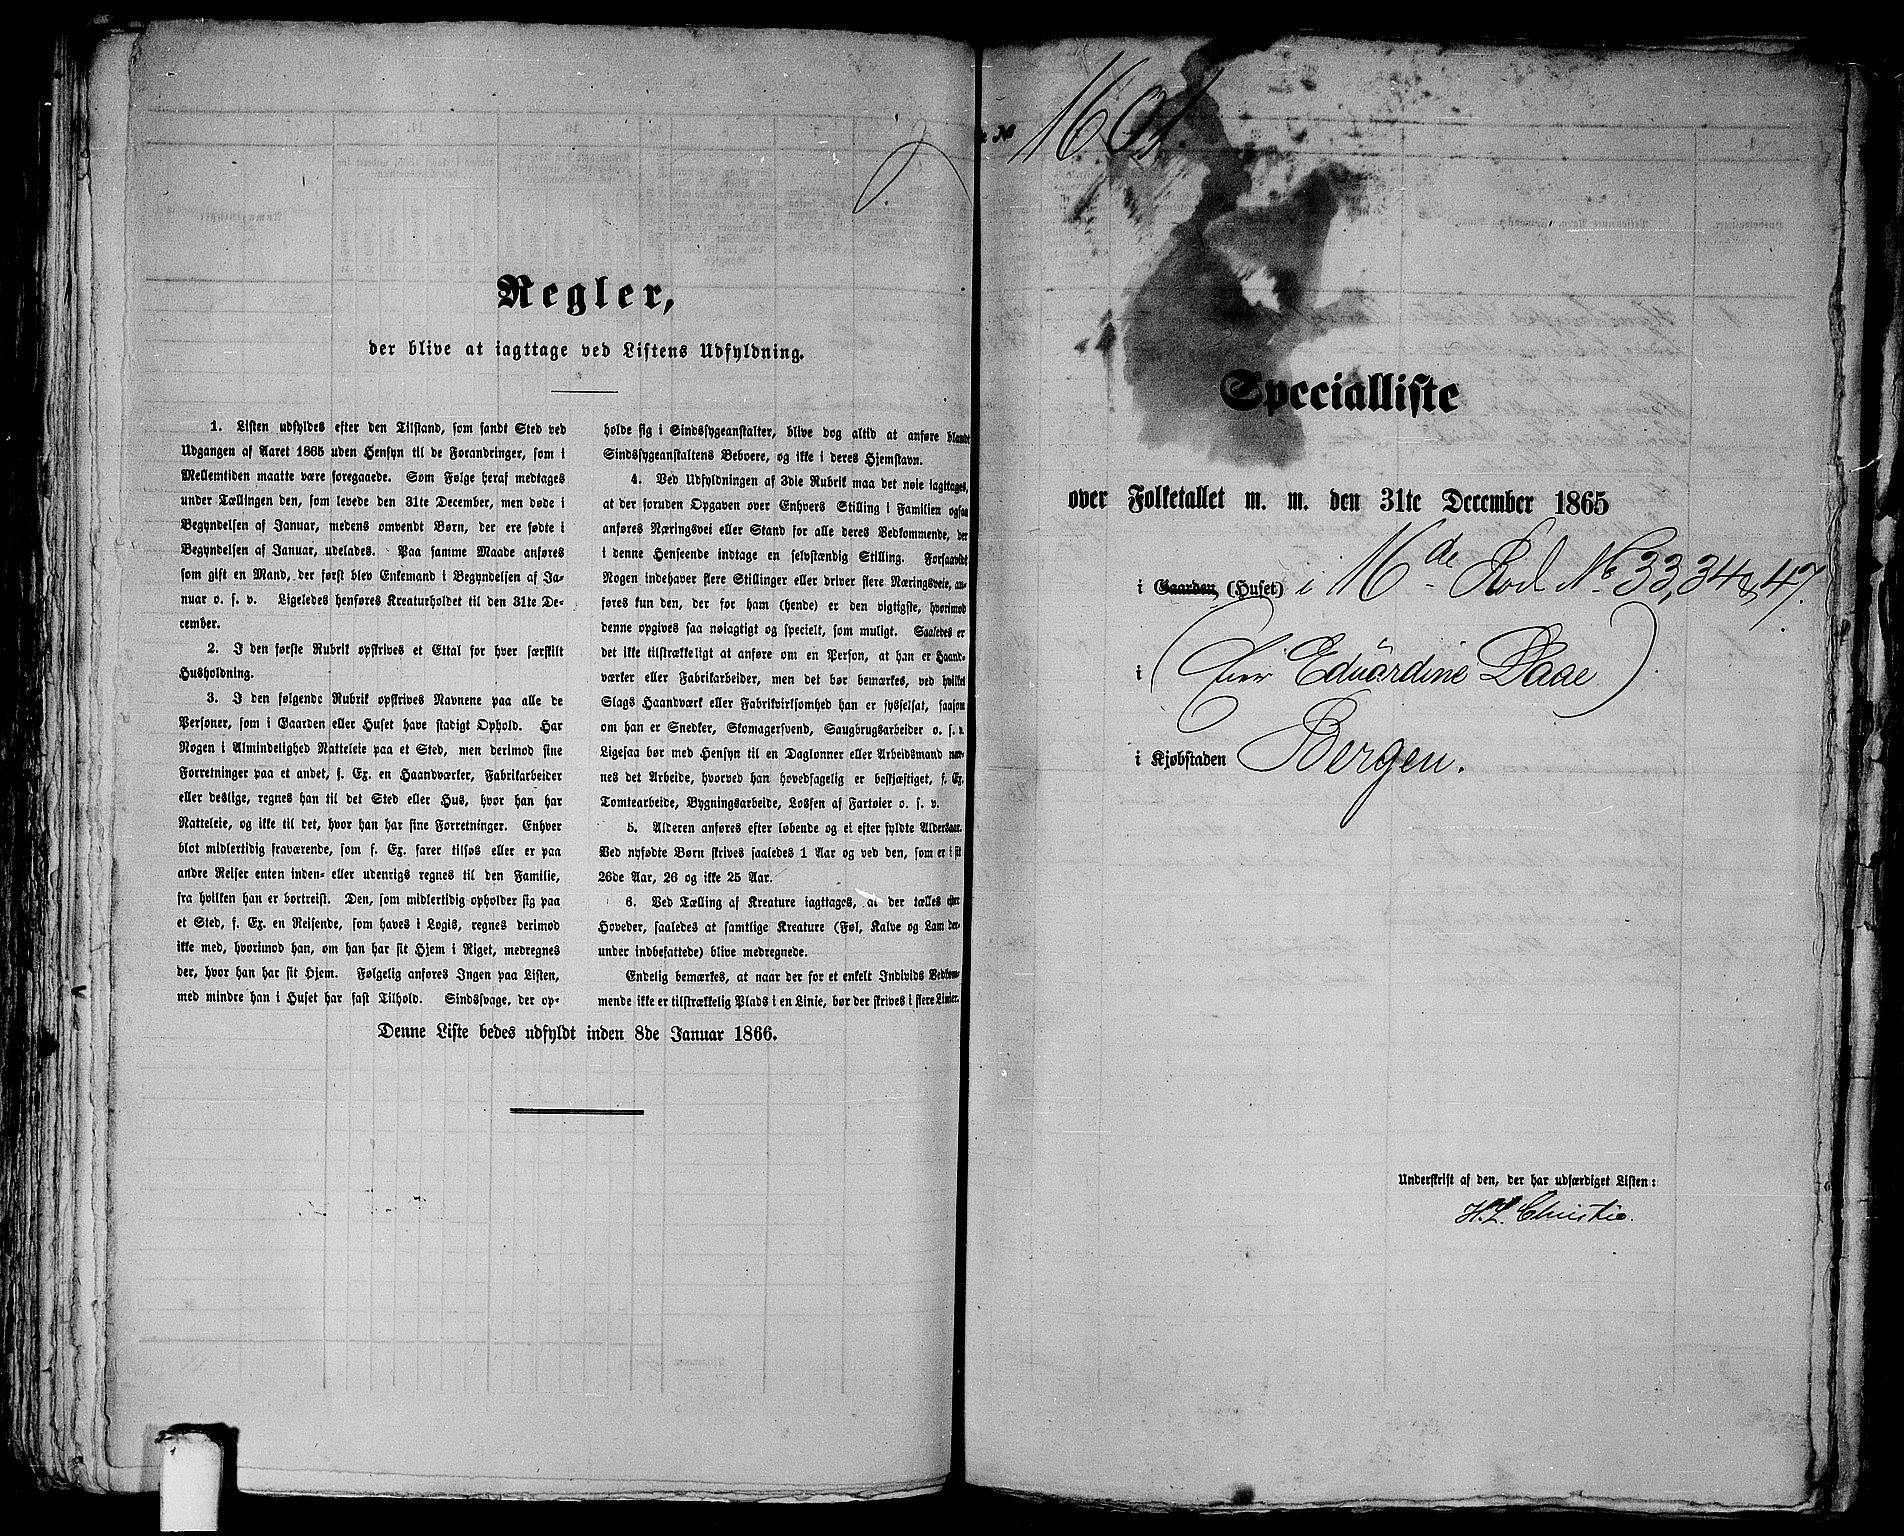 Regler,
der blive at iagttage ved Listens Udfyldning.
1. Listen udfyldes efter den Tilstand, som fandt Sted ved
Udgangen af Aaret 1865 uden Hensyn til de Forandringer, som i
Mellemtiden maatte være foregaaede. Som Følge heraf medtages
under Tællingen den, som levede den 31te December, men døde i
Begyndelsen af Januar, medens omvendt Børn, der ere fødte i
Begyndelsen af Januar, udelades. Paa samme Maade anføres
som gift en Mand, der først blev Enkemand i Begyndelsen af Ja-
nuar o. s. v. Ligeledes henføres Kreaturholdet til den 31te De-
cember.
2. I den første Rubrik opskrives et Ettal for hver særskilt
Husholdning.
3. I den følgende Rubrik opskrives Navnene paa alle de
Personer, som i Gaarden eller Huset have stadigt Ophold. Har
Nogen i Almindelighed Natteleie paa et Sted, men derimod sine
Forretninger paa et andet, f. Ex. en Haandværker, Fabrikarbeider
eller deslige, regnes han til det Sted eller Hus, hvor han har
Natteleie, og ikke til det, hvor han har sine Forretninger. Enhver
blot midlertidig fraværende, som f. Ex. farer tilsøs eller er paa
andre Reiser enten inden- eller udenrigs regnes til den Familie,
fra hvilken han er bortreist. Den, som midlertidig opholder sig paa
et Sted, f. Ex. en Reisende, som haves i Logis, regnes derimod
ikke med, hvorimod han, om han har sit Hjem i Riget, medregnes
der, hvor han har sit Hjem. Følgelig anføres Ingen paa Listen,
med mindre han i Huset har fast Tilhold. Sindssvage, der op-
holde sig i Sindssygeanstalter, blive dog altid at anføre blandt
Sindssygeanstaltens Beboere, og ikke i deres Hjemstavn.
4. Ved Udfyldningen af 3die Rubrik maa det nøie iagttages,
at der foruden Opgaven over Enhvers Stilling i Familien ogsaa
anføres Næringsvei eller Stand for alle deres Vedkommende, der
i denne Henseende indtage en selvstændig Stilling. Forsaavidt
Nogen indehaver flere Stillinger eller driver flere Næringsveie, an-
føres kun den, der for ham (hende) er den vigtigste, hvorimod
denne opgives saa nøiagtigt og specielt, som muligt. Saaledes er
det ikke tilstrækkeligt at anføre om en Person, at han er Haand-
værker eller Fabrikarbeider, men det bør bemærkes, ved hvilket
Slags Haandværk eller Fabrikvirksomhed han er sysselsat, saasom
om han er Snedker, Skomagersvend, Saugbrugsarbeider o. s. v.
Ligesaa bør med Hensyn til en Daglønner eller Arbeidsmand næv-
nes det Arbeide, hvorved han hovedsagelig er beskjæftiget, f. Ex.
Tomtearbeide, Bygningsarbeide, Lossen af Fartøier o. s. v.
5. Alderen anføres efter løbende og ei efter fyldte Aldersaar.
Ved nyfødte Børn skrives saaledes 1 Aar og ved den, som er i sit
26de Aar, 26 og ikke 25 Aar.
6. Ved Tælling af Kreature iagttages, at der tælles efter
Hoveder, saaledes at samtlige Kreature (Føl, Kalve og Lam der-
under indbefattede) blive medregnede.
Endelig bemærkes, at naar der for et enkelt Individs Vedkom-
mende ikke er tilstrækkelig Plads i en Linie, bør der skrives i flere Linier.
Denne Liste bedes udfyldt inden 8de Januar 1866.
No 1601.
Specialliste
over Folketallet m. m. den 31te December 1865
i Gaarden, (Huset) i 16de Rod No 33, 34 & 47.
i (Eier Eduardine Daae)
i Kjøbstaden Bergen.
Underskrift af den, der har udfærdiget Listen:
H. L. Christie.